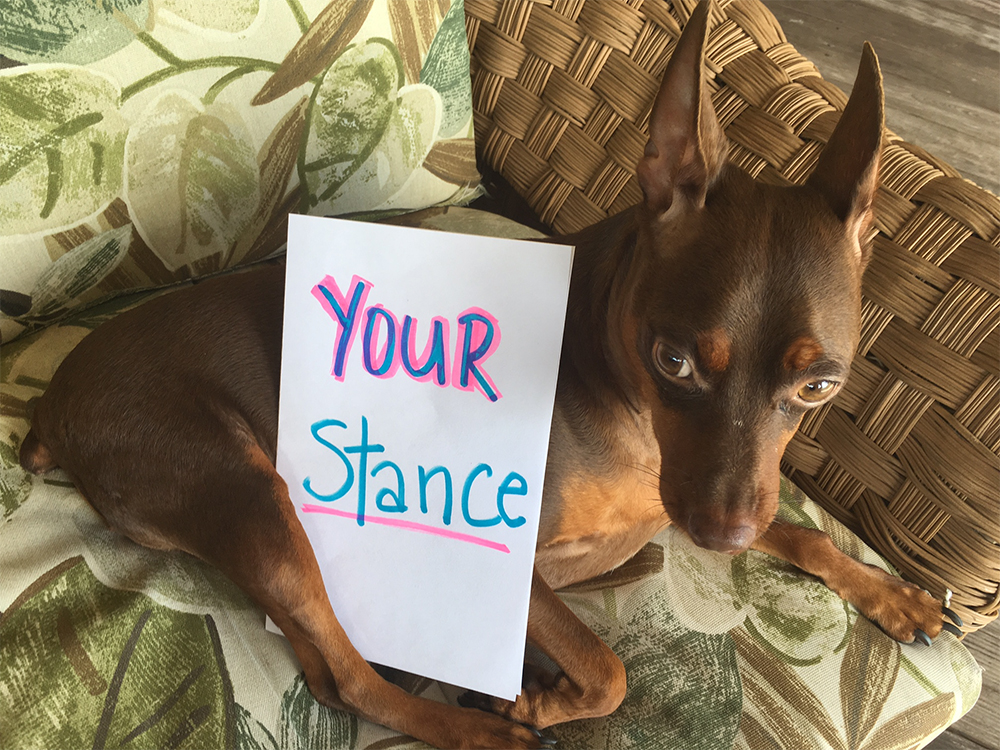 YOUR
Stance